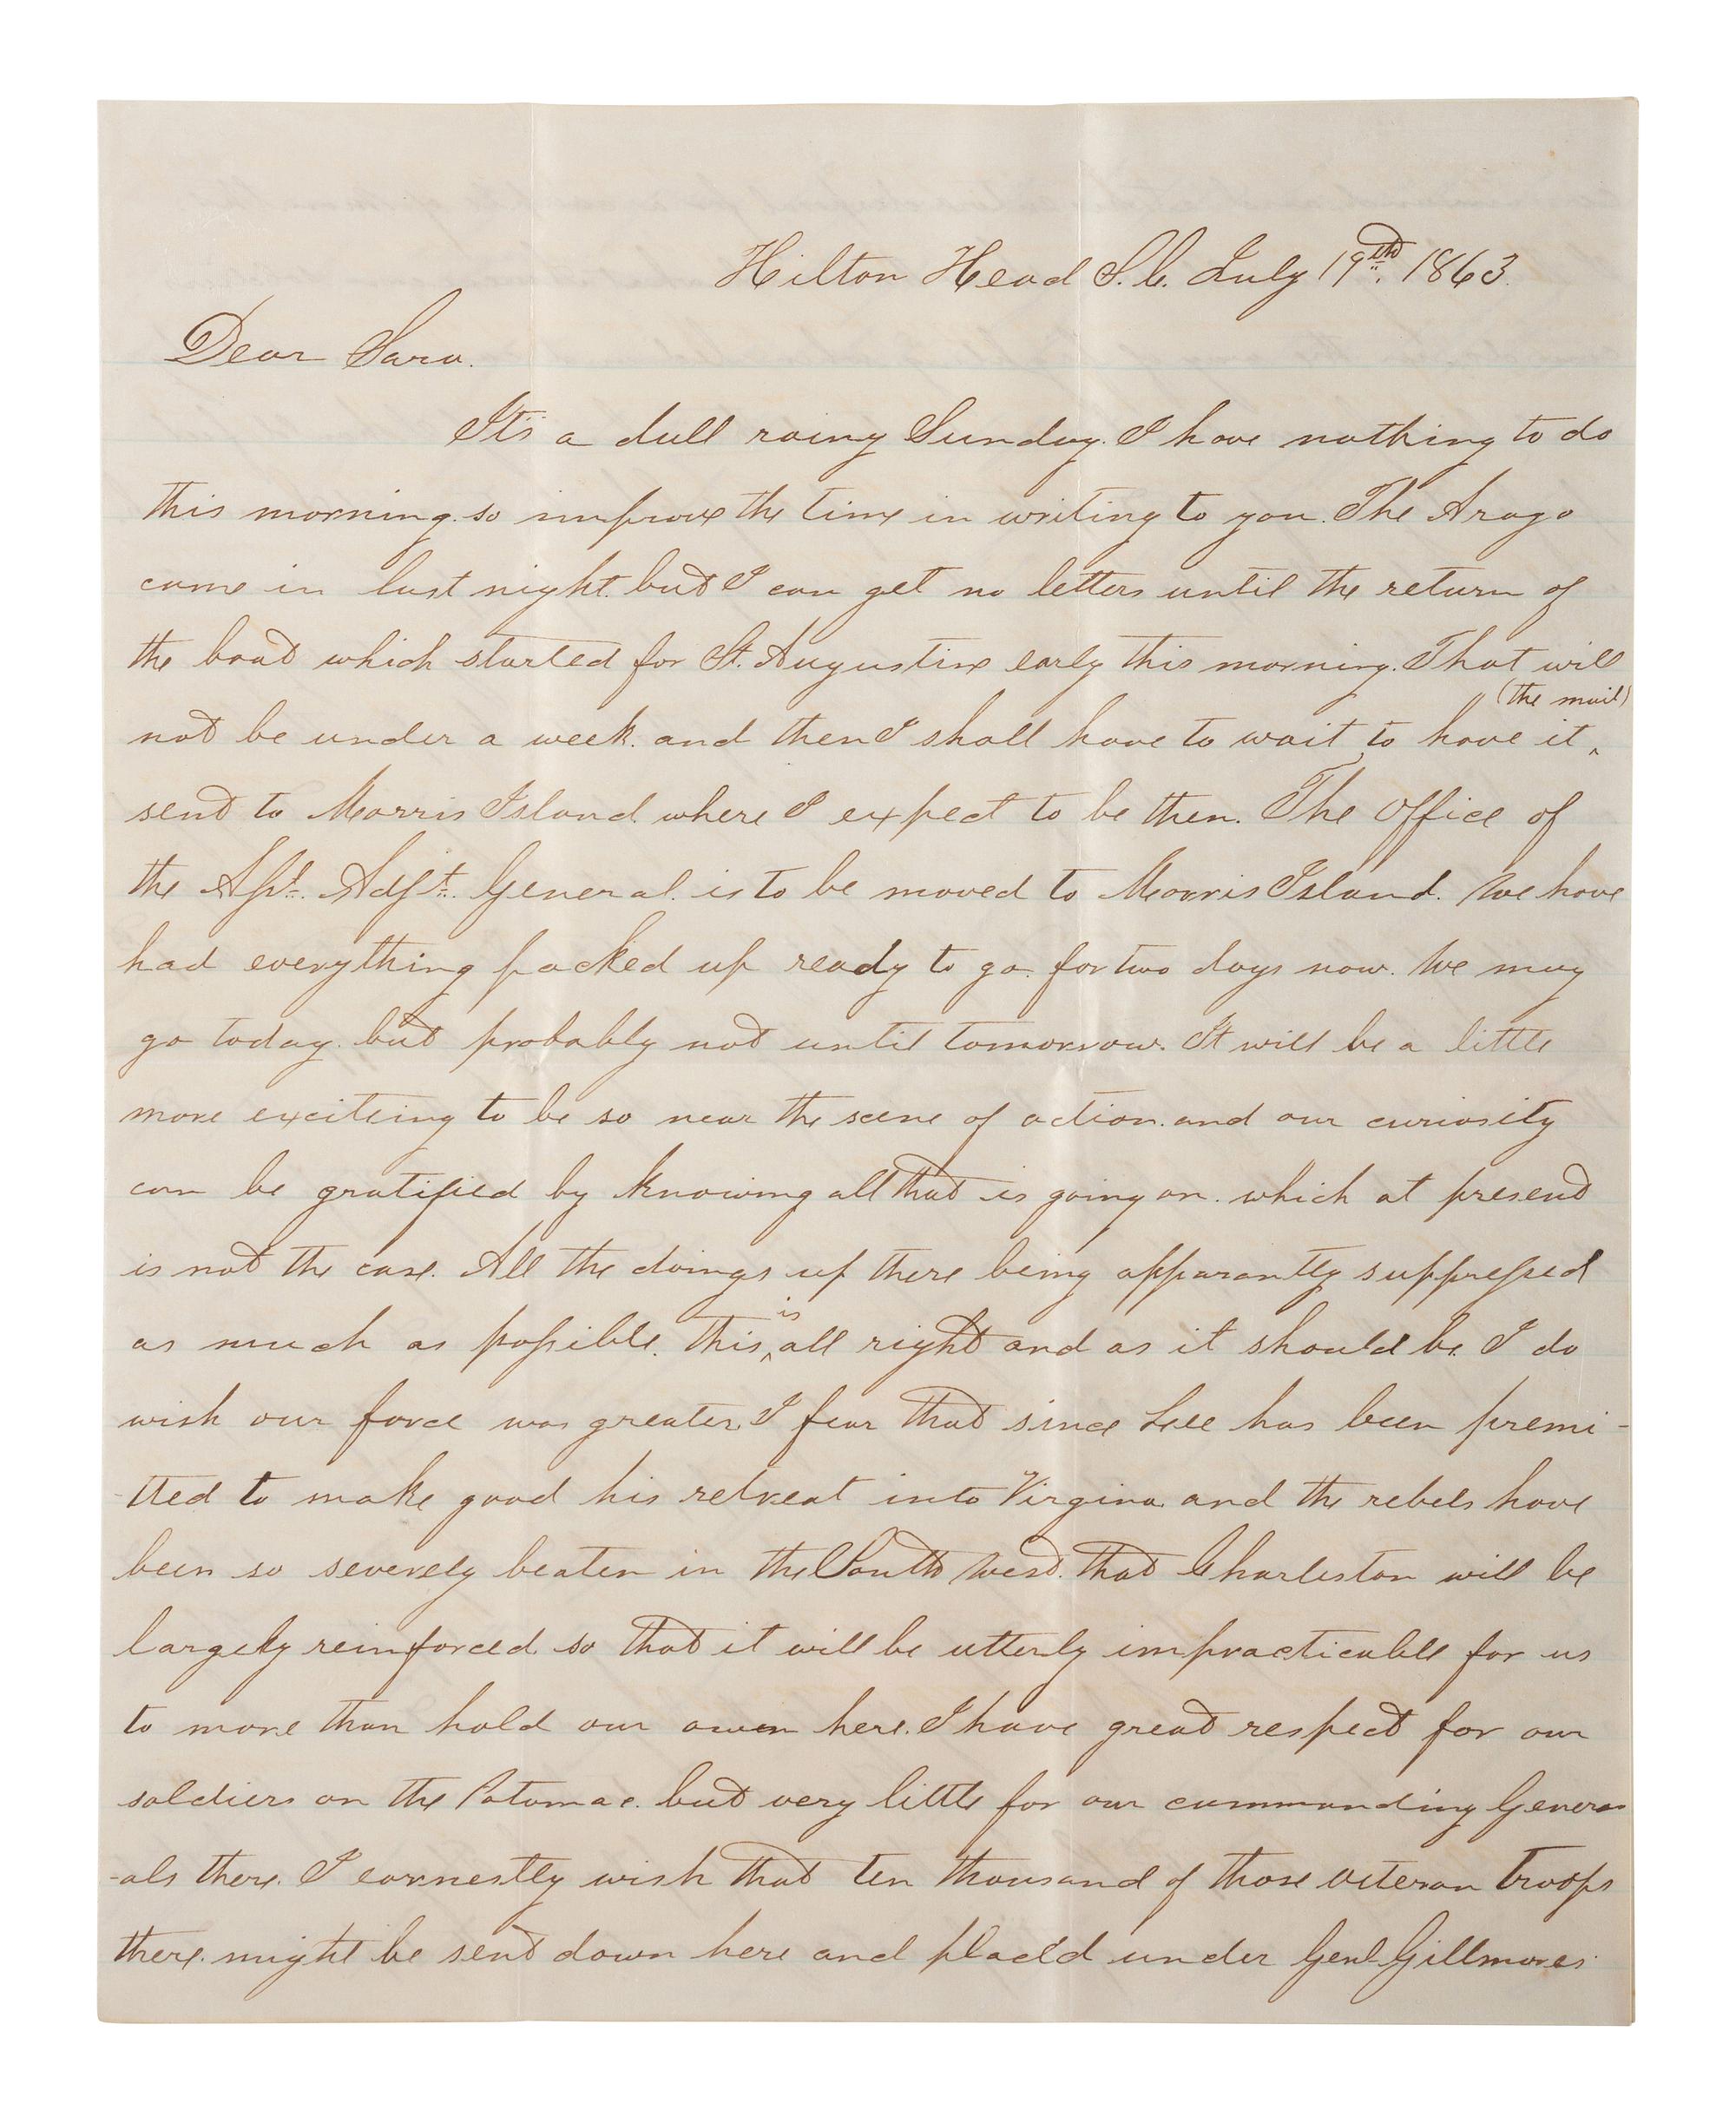 Hilton Head S.C. July 19th. 1863.
Dear Sara.
It's a dull rainy Sunday. I have nothing to do
this morning. so improve the time in writing to you. The Arago
came in last night. but I can get no letters until the return of
the boat which started for St. Augustine early this morning. That will
(the mail)
not be under a week. and then I shall have to wait to have it ‸
send to Morris Island. where I expect to be then. The office of
the Asst. Adjt. General. is to be moved to Morris Island. We have
had everything packed up ready to go. for two days now. We may
go today. but probably not until tomorrow. It will be a little
more exciteing to be so near the scene of action. and our curiosity
can be gratified by knowing all that is going on. which at present
is not the case. All the doings up there being apparantly suppressed
is
as much as possible. this ‸ all right and as it should be. I do
wish our force was greater. I fear that since Lee has been premi-
-tted to make good his retreat into Virgina and the rebels have
been so severely beaten in the South West. that Charleston will be
largely reinforced. so that it will be utterly impracticable for us
to more than hold our own here. I have great respect for our
soldiers on the Potomac. but very little for our commanding Gener
-als there. I earnestly wish that ten thousand of those veteran troops
there. might be send down here and placed under Genl. Gillmores